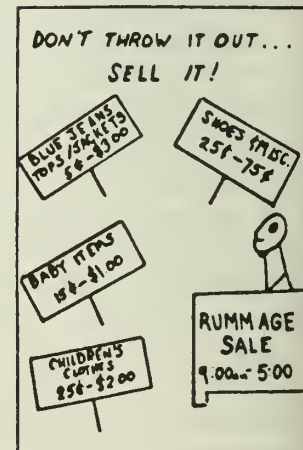 DON'T THROW IT OUT...
SELL IT!
BLUE JEANS
TOPS/JACKETS
5¢-$3.00
SHOES & MISC.
25¢-75¢
BABY ITEMS
15¢-$1.00
CHILDREN'S
CLOTHES
25¢-$2.00
RUMMAGE
SALE
9:00am-5:00